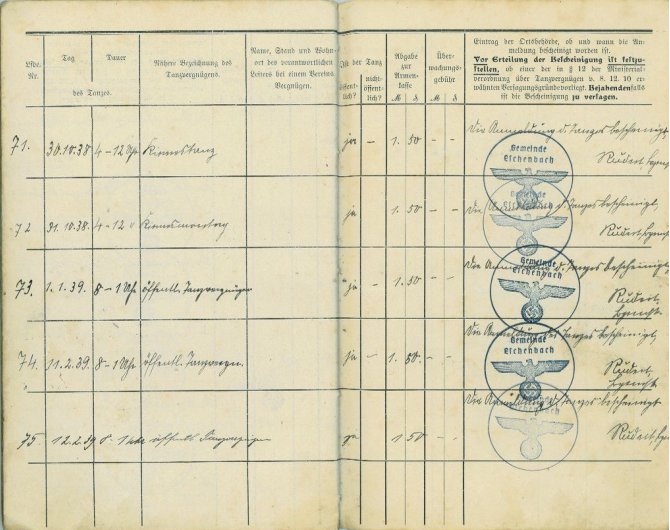 Lfde. Nr.
Tag
Dauer
des Tanzes.
Nähere Bezeichnung des Tanzvergnügens.
Name, Stand und Wohn-
ort des verantwortlichen
Leiters bei einem Vereins-
Vergnügen.
Ist der Tanz
öffent-
lich?
nicht-
öffent-
lich?
Abgabe
zur
Armen-
kasse
M ₰
Über-
wachungs-
gebühr
M ₰
Eintrag der Ortsbehörde, ob und wann die An-
meldung bescheinigt worden ist.
Vor Erteilung der Bescheinigung ist festzu-
stellen, ob einer der in § 12 der Ministerial-
verordnung über Tanzvergnügen v. 8. 12. 10 er-
wähnten Versagungsgründe vorliegt. Bejahendenfalls
ist die Bescheinigung zu versagen.
71. 30.10.38 4-12 Uhr Kirmestanz ja – 1. 50 – – Die Anmeldung d. Tanzes bescheinigt,
Gemeinde
Eschenbach
72 31.10.38 4-12 ja – 1. 50 – – Die Anmeldung d. Tanzes bescheinigt,
Gemeinde
73. 1.1.39. 8-1 Uhr öffentl. Tanzvergnügen ja – 1. 50 – – Die Anmeldung d. Tanzes bescheinigt,
Gemeinde
Eschenbach
74. 11.2.39. 8-1 Uhr öffentl. Tanzvergn. ja – 1. 50 – – Die Anmeldung des Tanzes bescheinigt,
Gemeinde
Eschenbach
75 12.2.39 8-1 Uhr öffentl. Tanzvergnügen ja 1 50 – – Die Anmeldung d. Tanzes bescheinigt
Eschenbach